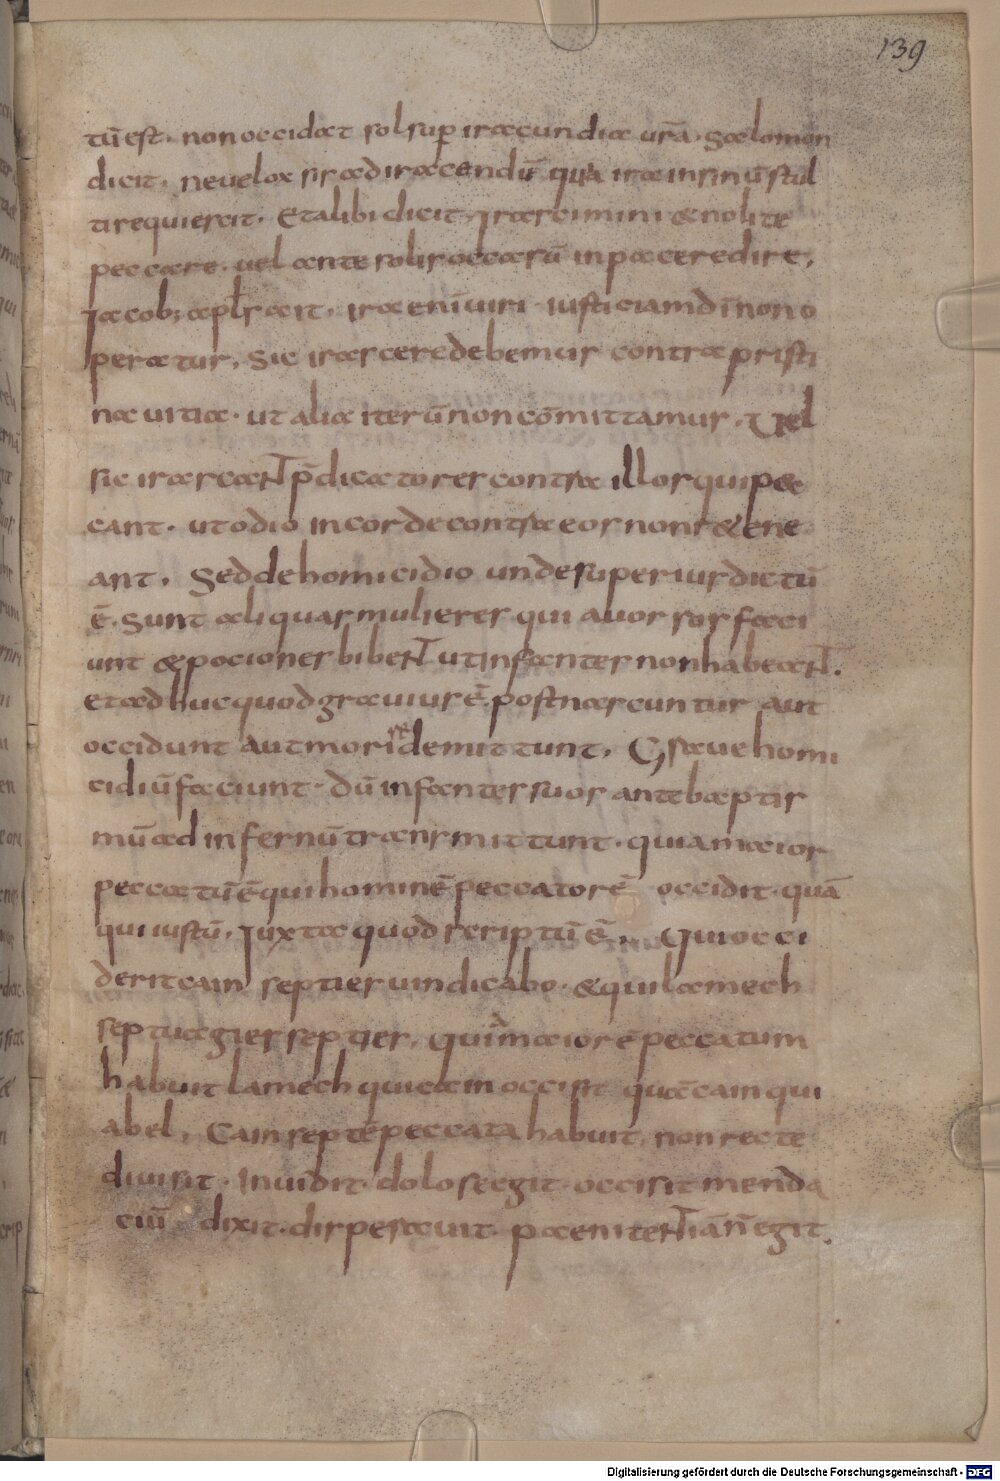 139
tū est. non occidat sol sup iracundia urā. Salomon
dicit. ne uelox sis ad irascendū quia ira in sinu stul
ti requiescit. Et alibi dicit. Irascimini & nolite
peccare. uel ante solis occasū in pace redire.
Iacob; apls ait. ira enī uiri iusticiam dī non o
peratur. Sic irascere debemus contra pristi
na uitia. ut alia iterū non cōmittamus. Vel
sic irascant p̄dicatores contra illos qui pec
cant. ut odio in corde contra eos non r&ene
ant. Sed de homicidio unde superius dictū
ē. Sunt aliquas mulieres qui auorsos faci
unt & pociones bibent ut infantes non habeant.
et ad huc quod grauius ē. post nascuntur aut
occidunt aut mori se demittunt. Graue homi
cidiū faciunt. dū infantes suos ante baptis
mū ad infernū transmittunt. quia maior
peccatū ē qui hominē peccatorē occidit quā
qui iustū. Iuxta quod scriptū ē. Qui occi
derit cain septies uindicabo. & qui lamech
septuagies septies. Quia maiorē peccatum
habuit lamech qui cain occisit quā cain qui
abel. Cain septē peccata habuit. non recte
diuisit. Inuidit. dolose egit. occisit menda
ciū dixit. disperauit. paenitentiā n̄ egit.
Digitalisierung gefördert durch die Deutsche Forschungsgemeinschaft - DFG